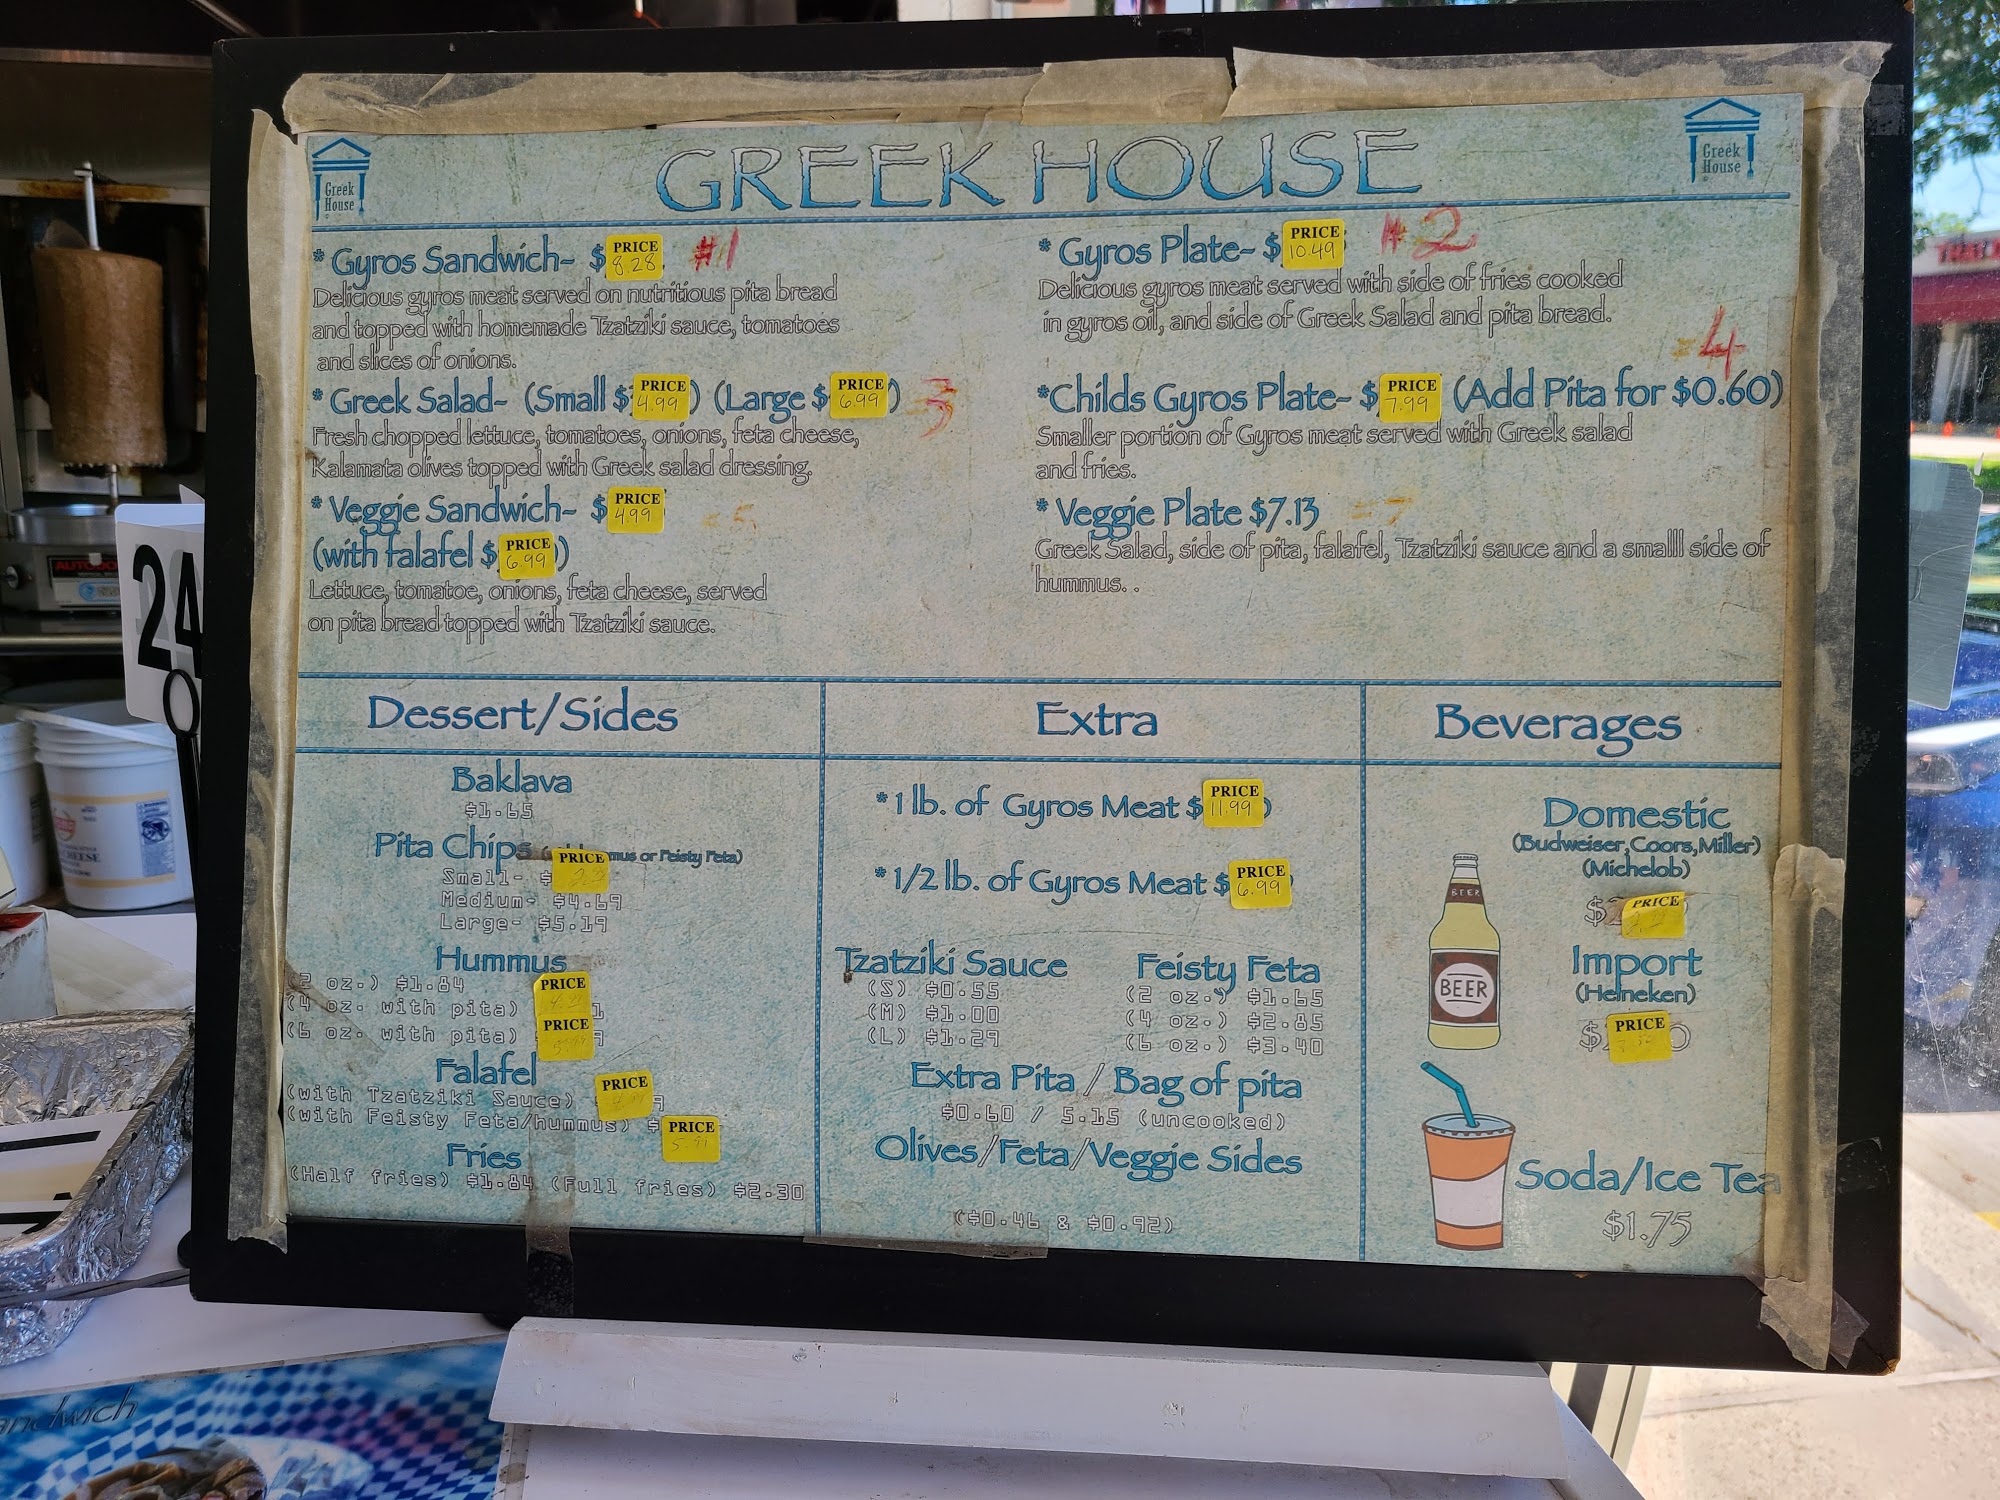 GREEK HOUSE
Greek
House
Greek
House
* Gyros Sandwich~ $ PRICE 8.28 #1
Delicious gyros meat served on nutritious pita bread
and topped with homemade Tzatziki sauce, tomatoes
and slices of onions.
* Greek Salad~ (Small $ PRICE 4.99) (Large $ PRICE 6.99) 3
Fresh chopped lettuce, tomatoes, onions, feta cheese,
Kalamata olives topped with Greek salad dressing.
* Veggie Sandwich~ $ PRICE 4.99 5
(with falafel $ PRICE 6.99)
Lettuce, tomatoe, onions, feta cheese, served
on pita bread topped with Tzatziki sauce.
* Gyros Plate~ $ PRICE 10.49 #2
Delicious gyros meat served with side of fries cooked
in gyros oil, and side of Greek Salad and pita bread.
4
*Childs Gyros Plate~ $ PRICE 7.99 (Add Pita for $0.60)
Smaller portion of Gyros meat served with Greek salad
and fries.
* Veggie Plate $7.13 7
Greek Salad, side of pita, falafel, Tzatziki sauce and a smalll side of
hummus. .
Dessert/Sides
Baklava
$1.65
Pita Chips or Feisty Feta)
Small- $ PRICE
Medium- $4.69
Large- $5.19
Hummus
(2 oz.) $1.84
(4 oz. with pita) PRICE
(6 oz. with pita) PRICE
Falafel
(with Tzatziki Sauce) PRICE
(with Feisty Feta/hummus) $ PRICE
Fries
(Half fries) $1.84 (Full fries) $2.30
Extra
* 1 lb. of Gyros Meat $ PRICE 11.99
* 1/2 lb. of Gyros Meat $ PRICE 6.99
Tzatziki Sauce
(S) $0.55
(M) $1.00
(L) $1.29
Feisty Feta
(2 oz.) $1.65
(4 oz.) $2.85
(6 oz.) $3.40
Extra Pita / Bag of pita
$0.60 / 5.15 (uncooked)
Olives/Feta/Veggie Sides
($0.46 & $0.92)
Beverages
Domestic
(Budweiser,Coors,Miller)
(Michelob)
$ PRICE
Import
(Heineken)
$ PRICE
BEER
BEER
Soda/Ice Tea
$1.75
24
CHEESE